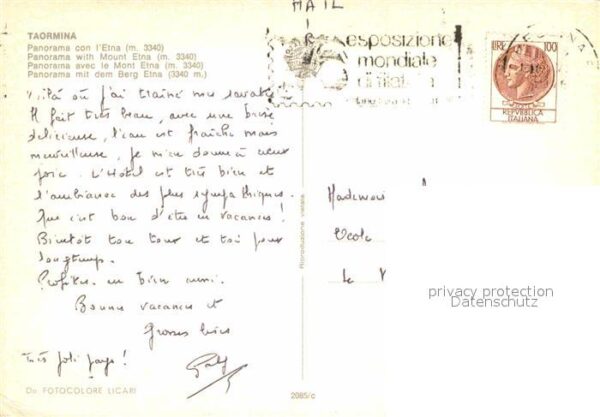 MAIL
TAORMINA
Panorama con l'Etna (m. 3340)
Panorama with Mount Etna (m. 3340)
Panorama avec le Mont Etna (m. 3340)
Panorama mit dem Berg Etna (3340 m.)
esposizione
mondiale
LIRE 100
REPVBBLICA
ITALIANA
Voilà où j'ai trainé mes savates
Il fait très beau, avec une brise
délicieuse, l'eau est fraîche mais
merveilleuse, je m'en donne à cœur
joie. L'Hôtel est très bien et
l'ambiance des plus sympathiques.
Que c'est bon d'être en vacances!
Bientôt ton tour et toi pour
longtemps.
Profites en bien aussi.
Bonnes vacances et
Grosses bises
très joli pays!
Ecole
Le
Riproduzione vietata
privacy protection
Datenschutz
Da FOTOCOLORE LICARI
2085/c